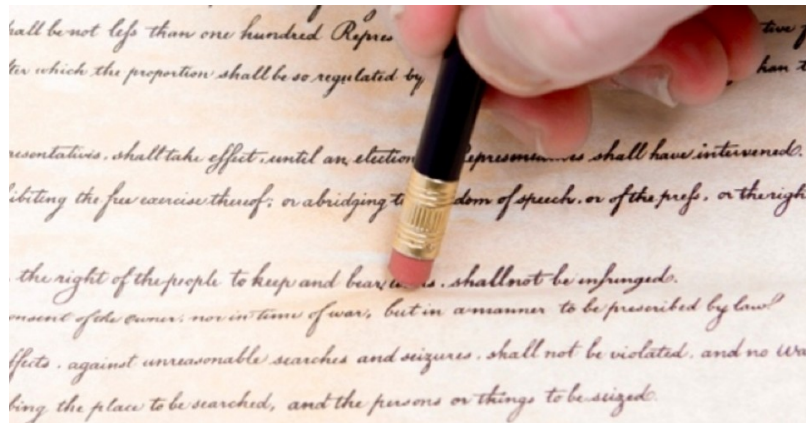 hall be not less than one hundred Repres tive
ter which the proportion shall be so regulated by han
resentatives, shall take effect, until an election shall have intervened.
ibiting the free exercise thereof; or abridging dom of speech, or of the press, or the right
the right of the people to keep and bear s, shall not be infringed.
onsent of the Owner; nor in time of war, but in a manner to be prescribed by law.
ffects, against unreasonable searches and seizures, shall not be violated, and no Wa
bing the place to be searched, and the persons or things to be seized.